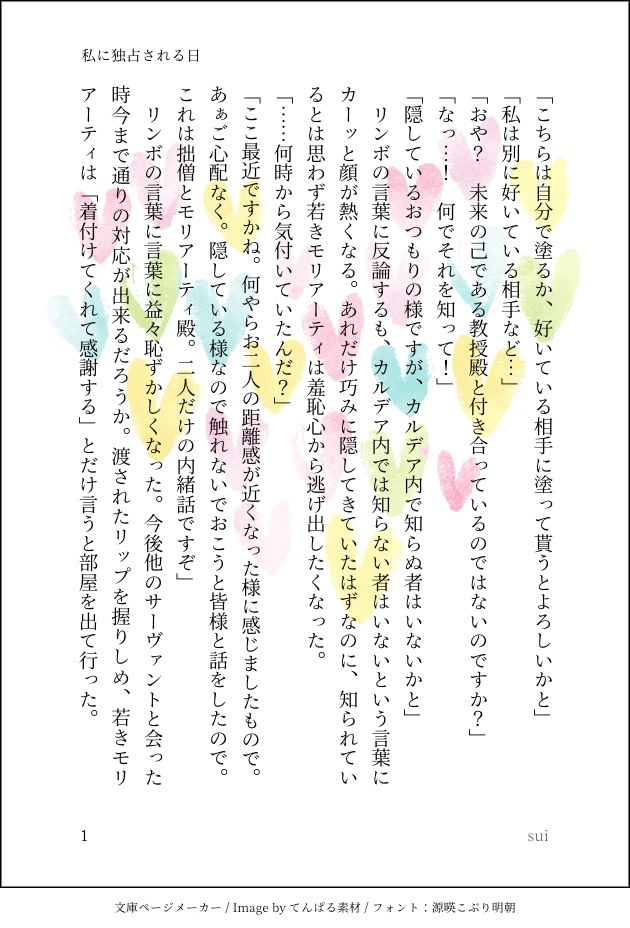 私に独占される日
「こちらは自分で塗るか、好いている相手に塗って貰うとよろしいかと」
「私は別に好いている相手など…」
「おや？　未来の己である教授殿と付き合っているのではないのですか？」
「なっ…！　何でそれを知って！」
「隠しているおつもりの様ですが、カルデア内で知らぬ者はいないかと」
　リンボの言葉に反論するも、カルデア内では知らない者はいないという言葉に
カーッと顔が熱くなる。あれだけ巧みに隠してきていたはずなのに、知られてい
るとは思わず若きモリアーティは羞恥心から逃げ出したくなった。
「……何時から気付いていたんだ？」
「ここ最近ですかね。何やらお二人の距離感が近くなった様に感じましたもので。
あぁご心配なく。隠している様なので触れないでおこうと皆様と話をしたので。
これは拙僧とモリアーティ殿。二人だけの内緒話ですぞ」
　リンボの言葉に言葉に益々恥ずかしくなった。今後他のサーヴァントと会った
時今まで通りの対応が出来るだろうか。渡されたリップを握りしめ、若きモリ
アーティは「着付けてくれて感謝する」とだけ言うと部屋を出て行った。
1
sui
文庫ページメーカー / Image by てんぱる素材 / フォント：源暎こぶり明朝